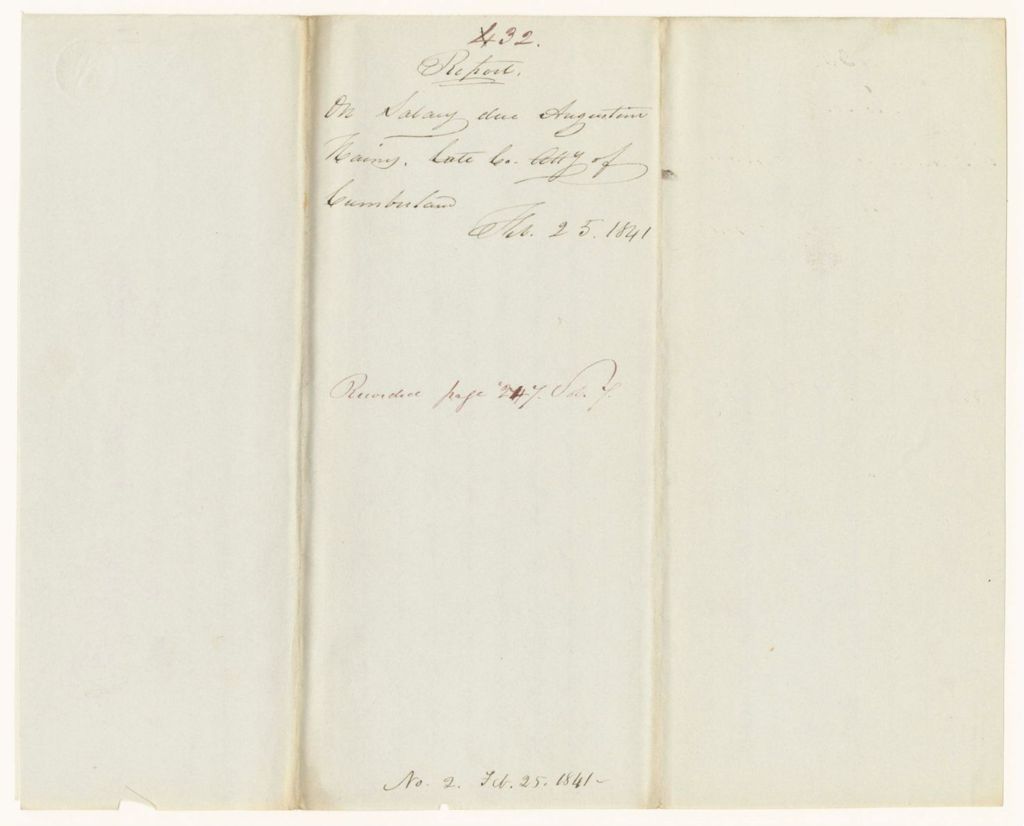 432.
Report.
On Salary due Augustine
Haines. late Co. Atty of
Cumberland
Feb. 25. 1841
Recorded page 247. Vol. 7.
No. 2. Feb. 25. 1841-